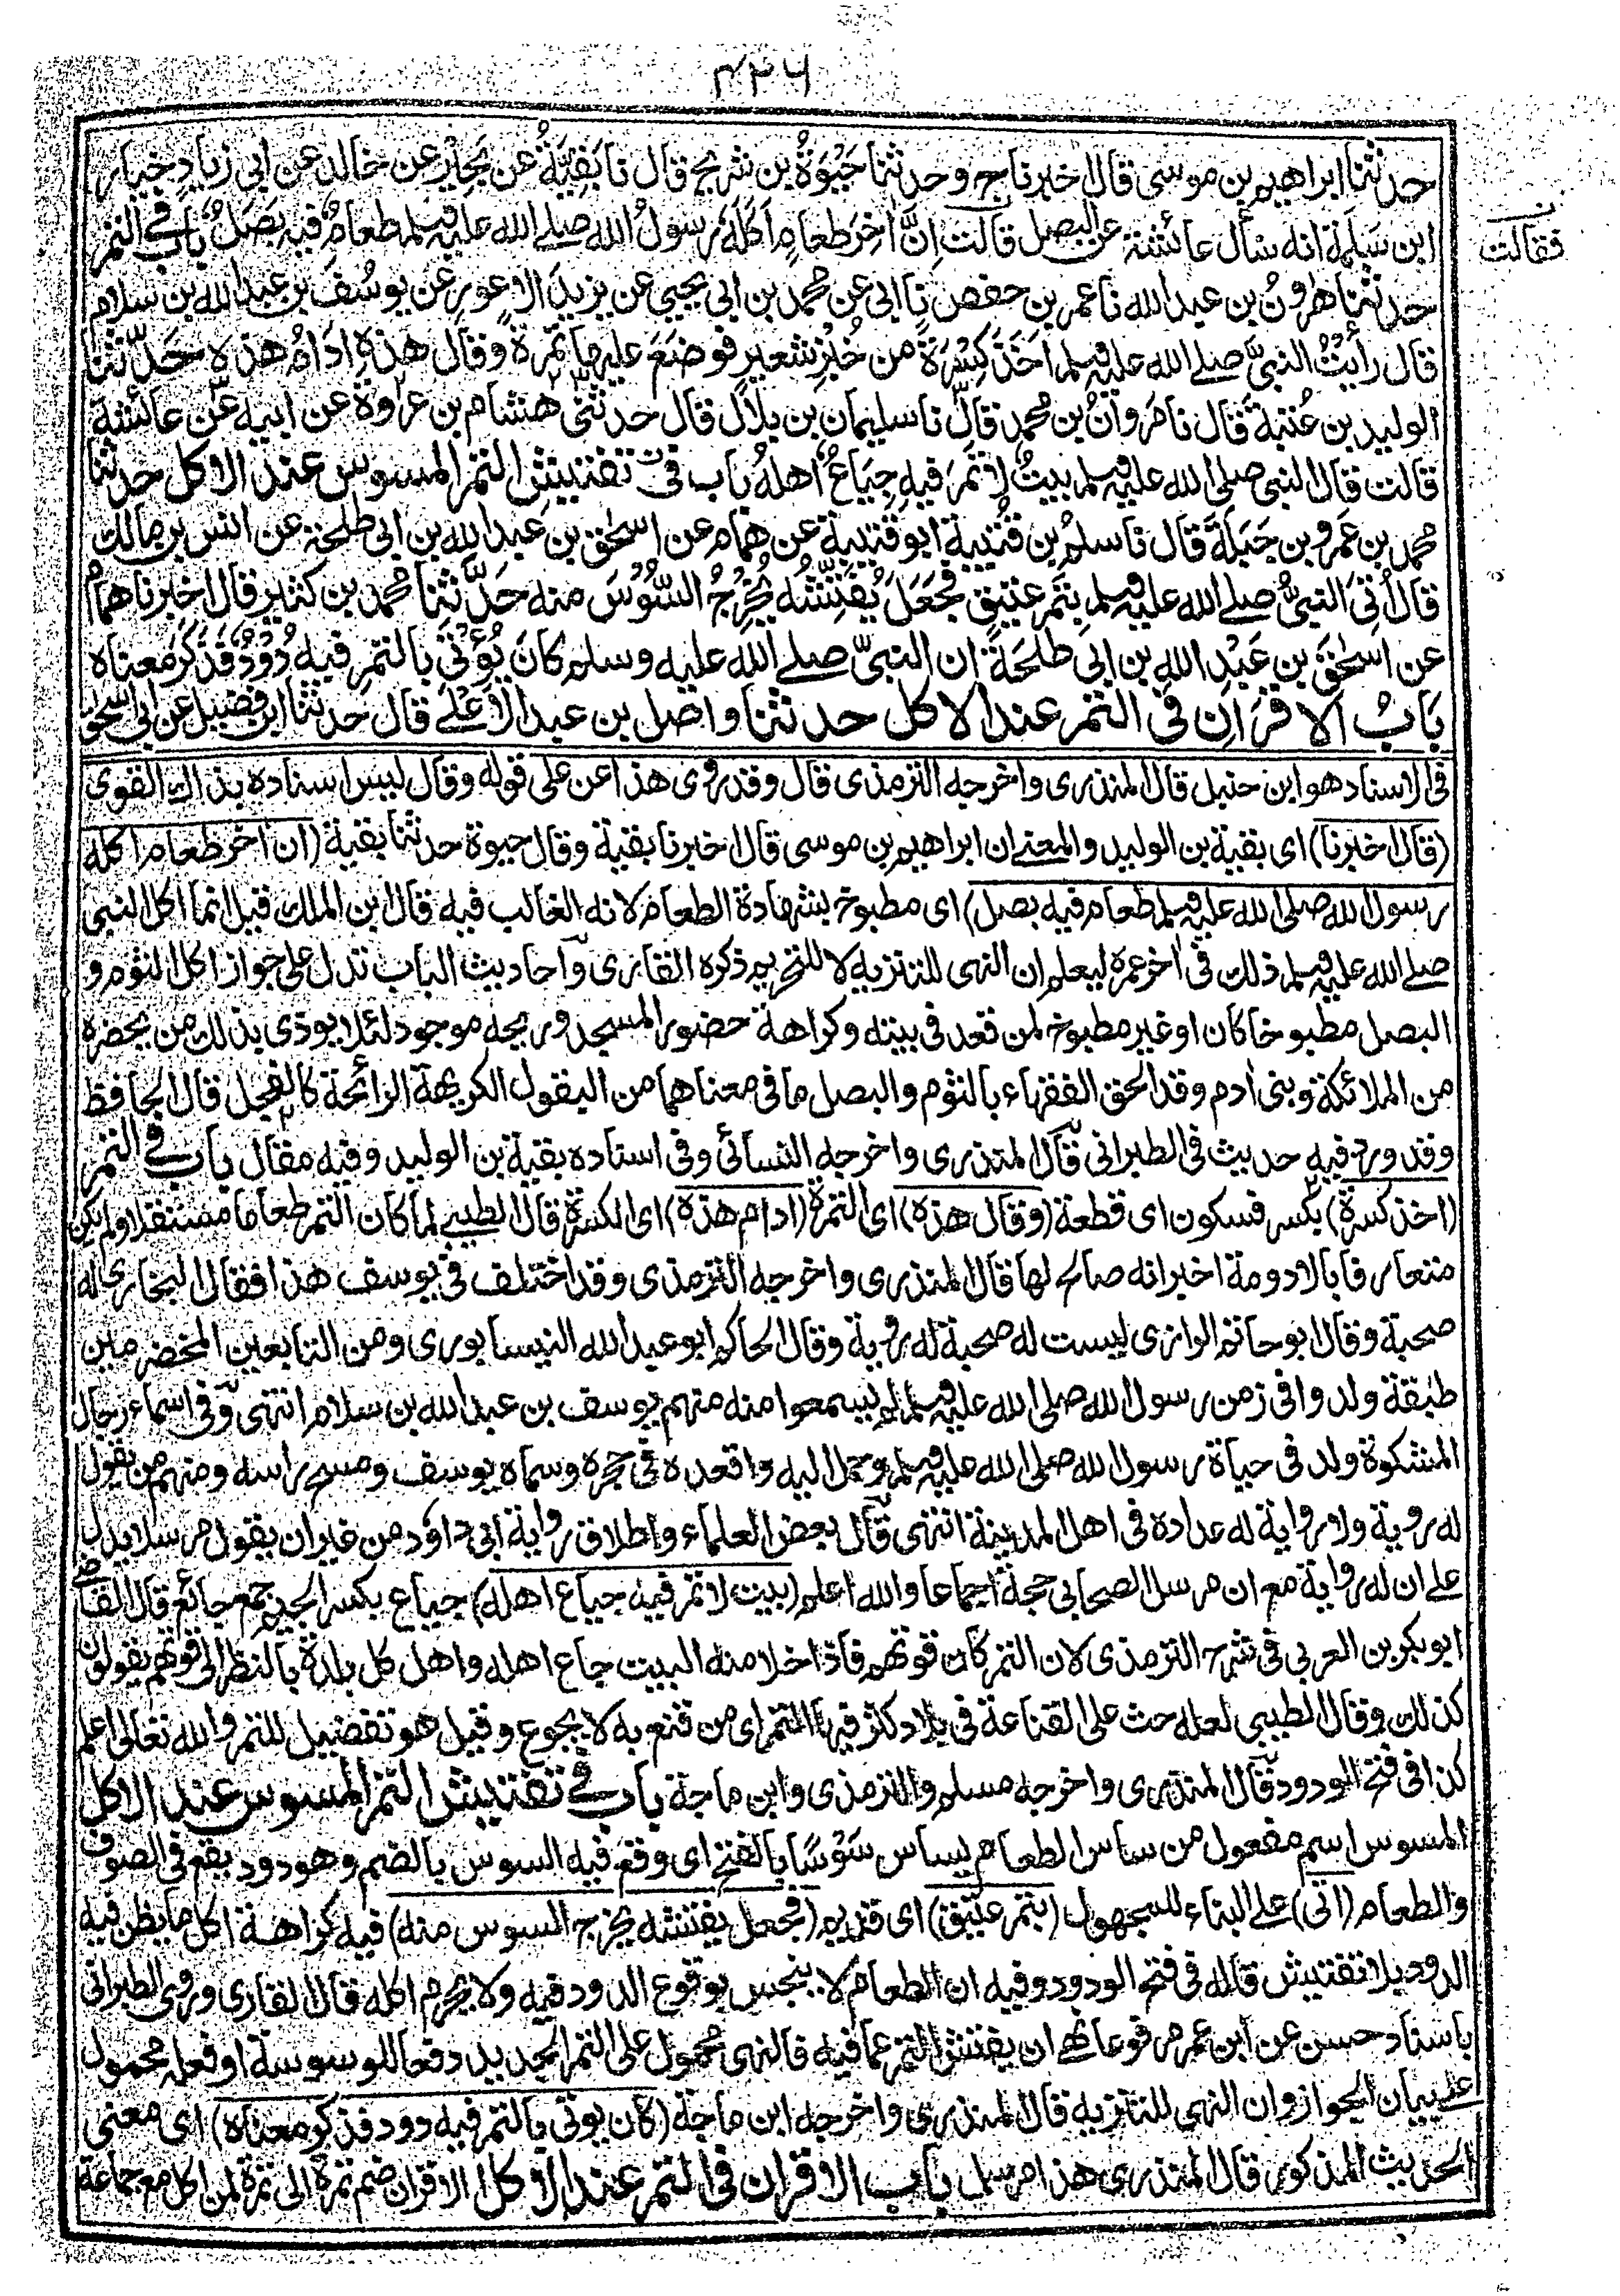 ٤٢٦
حدثنا ابراهيم بن موسى قال اخبرنا ح وحدثنا حَيْوَةُ بن شريح قال نا بَقِيَّةُ عن بَحِيْرٍ عن خالد عن ابى زيادٍ خيار
ابن سَلِمَةَ انه سأل عائشة عن البصل قالت اِنَّ اٰخِرَ طعامٍ اَكَلَهُ رسولُ الله صلے الله عليه وسلم طعامٌ فيه بَصَلٌ باب فے التمر
فقالت
حدثنا هٰرونُ بن عبد الله نا عمر بن حفص نا ابى عن محمد بن ابى يحيى عن يزيدَ الاعورِ عن يوسُفَ بن عبد الله بن سلام
قال رأيتُ النبىَّ صلے الله عليه وسلم اَخَذَ كِسْرَةً من خُبْزِ شعيرٍ فوضَعَ عليها تمرةً وقال هٰذهٖ اِدَامُ هٰذهٖ حَدَّثنا
الوليد بن عُتبةَ قال نا مَروانُ بن محمد قال نا سليمان بن بلال قال حدثنى هشام بن عروة عن ابيه عن عائشة
قالت قال النبى صلى الله عليه وسلم بيتٌ لا تَمْرَ فيهِ جِيَاعٌ اهلُهُ باب فى تفتيش التمر المسوس عند الاكل حدثنا
محمد بن عَمرو بن جَبَلَةَ قال نا سلمُ بن قُتَيبةَ ابو قتيبة عن همام عن اسحٰق بن عبد الله بن ابى طلحة عن انس بن مالك
قال اُتِىَ النبىُّ صلے الله عليه وسلم بتَمرٍ عتيقٍ فجَعَلَ يُفَتِّشُه يُخرِجُ السُّوْسَ منه حَدَّثنا محمد بن كثير قال اخبرنا همام
عن اسحٰقَ بن عَبْدِ اللهِ بن ابى طلحَةَ ان النبىَّ صلے الله عليه وسلم كانَ يُؤْتٰى بالتمرِ فيه دُوْدٌ فَذَكَرَ معناه
بَابُ الاقرَانِ فى التمر عند الاكل حدثنا واصل بن عبد الاعلےٰ قال حدثنا ابن فضيل عن ابى اسحٰق
فى الاسناد هو ابن حنبل قال المنذرى واخرجه الترمذى قال وقد روى هذا عن على قوله وقال ليس اسناده بذاك القوى
(قال اخبرنا) اى بقية بن الوليد والمعنےٰ ان ابراهيم بن موسى قال اخبرنا بقية وقال حيوة حدثنا بقية (ان اٰخر طعام اكله
رسول الله صلى الله عليه وسلم طعام فيه بصل) اى مطبوخ بشهادة الطعام لانه الغالب فيه قال ابن الملك قيل انما اكل النبى
صلے الله عليه وسلم ذلك فى اٰخر عمره ليعلم ان النهى للتنزيه لا للتحريم ذكره القارى واحاديث الباب تدل على جواز اكل الثوم و
البصل مطبوخا كان او غير مطبوخ لمن قعد فى بيته وكراهة حضور المسجد وريحه موجود لئلا يوذى بذلك من يحضره
من الملائكة وبنى اٰدم وقد الحق الفقهاء بالثوم والبصل ما فى معناهما من البقول الكريهة الرائحة كالفجل قال الحافظ
وقد ورد فيه حديث فى الطبرانى قال المنذرى واخرجه النسائى وفى اسناده بقية بن الوليد وفيه مقال باب فے التمر
(اخذ كسرة) بكسر فسكون اى قطعة (وقال هذه) اى التمرة (ادام هذه) اى الكسرة قال الطيبے لما كان التمر طعاما مستقلا ولم يكن
متعارفا بالادومة اخبر انه صالح لها قال المنذرى واخرجه الترمذى وقد اختلف فى يوسف هذا فقال البخارى له
صحبة وقال ابو حاتم الرازى ليست له صحبة له روية وقال الحاكم ابو عبد الله النيسابورى ومن التابعين المخضرمين
طبقة ولدوا فى زمن رسول الله صلى الله عليه وسلم لم يسمعوا منه منهم يوسف بن عبد الله بن سلام انتهى وفى اسماء رجال
المشكوة ولد فى حياة رسول الله صلى الله عليه وسلم وحمل اليه واقعده فى حجره وسماه يوسف ومسح راسه ومنهم من يقول
له روية ولا رواية له عداده فى اهل المدينة انتهى قال بعض العلماء واطلاق رواية ابى داؤد من غير ان يقول مرسلا يدل
علے ان له رواية مع ان مرسل الصحابى حجة اجماعا والله اعلم (بيت لا تمر فيه جياع اهله) جياع بكسر الجيم جمع جائع قال القاضے
ابو بكر بن العربى فى شرح الترمذى لان التمر كان قوتهم فاذا خلا منه البيت جاع اهله واهل كل بلدة بالنظر الى قوتهم يقولون
كذلك وقال الطيبى لعله حث على القناعة فى بلاد كثر فيها التمر اى من قنع به لا يجوع وقيل هو تفضيل للتمر والله تعالى اعلم
كذا فى فتح الودود قال المنذرى واخرجه مسلم والترمذى وابن ماجة باب فے تفتيش التمر المسوس عند الاكل
المسوس اسم مفعول من ساس الطعام يساس سَوْسًا بالفتح اى وقع فيه السوس بالضم وهو دود يقع فى الصوف
والطعام (اتى) علے البناء للمجهول (بتمر عتيق) اى قديم (فجعل يفتشه يخرج السوس منه) فيه كراهة اكل ما يظن فيه
الدود بلا تفتيش قاله فى فتح الودود وفيه ان الطعام لا ينجس بوقوع الدود فيه ولا يحرم اكله قال القارى وروى الطبرانى
باسناد حسن عن ابن عمر مرفوعا نهے ان يفتش التمر عما فيه فالنهى محمول على التمر الجديد دفعا للوسوسة او فعله محمول
علے بيان الجواز وان النهى للتنزيه قال المنذرى واخرجه ابن ماجة (كان يوتى بالتمر فيه دود فذكر معناه) اى معنى
الحديث المذكور قال المنذرى هذا مرسل باب الاقران فى التمر عند الاكل الاقران ضم تمرة الى تمرة لمن اكل مع جماعة